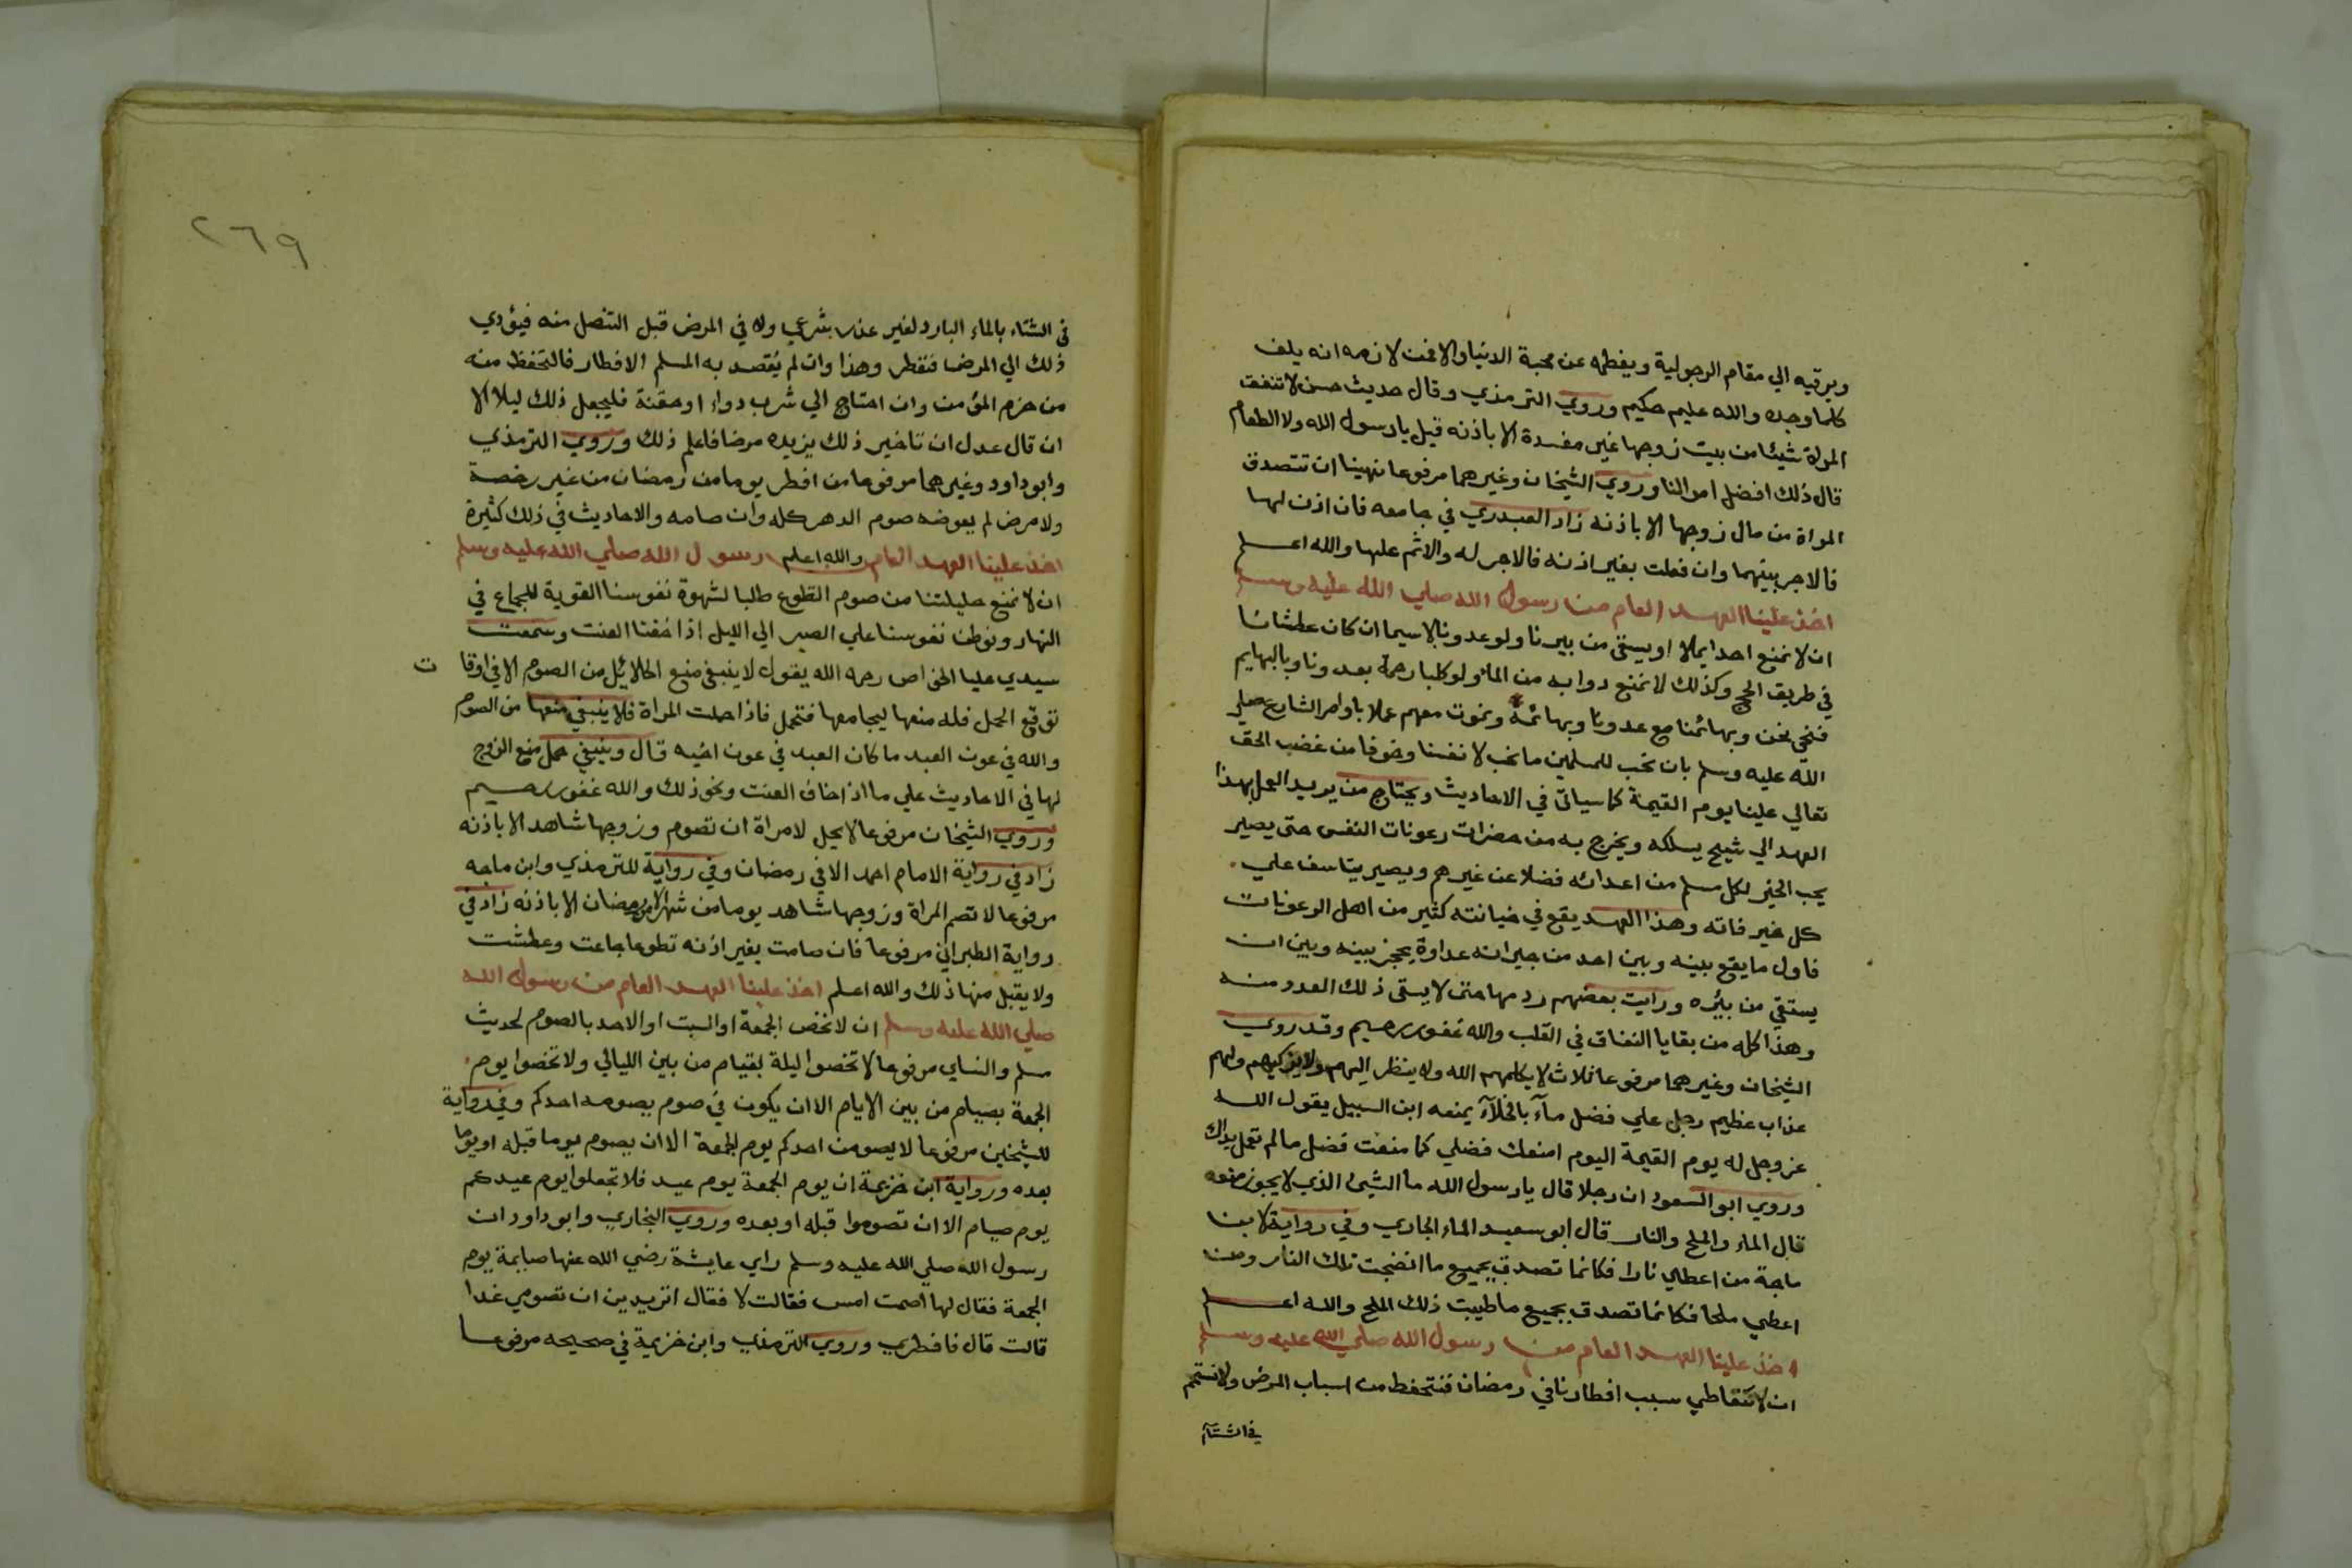 ويرقيه الي مقام الرجولية ويفطمه عن محبة الدنيا والا فمن لازمه انه يلف
كلما وجده والله عليم حكيم وروي الترمذي وقال حديث حسن لا تنفق
المراة شيئا من بيت زوجها غير مفسدة الا باذنه قيل يا رسول الله ولا الطعام
قال ذلك افضل اموالنا وروي الشيخان وغيرهما مرفوعا نهينا ان تتصدق
المراة من مال زوجها الا باذنه زاد العبدري في جامعه فان اذن لها
فالاجر بينهما وان فعلت بغير اذنه فالاجر له والاثم عليها والله اعلم
اخذ علينا العهد العام من رسول الله صلي الله عليه وسلم
ان لا نمنع احدا يملا او يستقي من بيرنا ولو عدونا لاسيما ان كان عطشانا
في طريق الحج وكذلك لا نمنع دوابه من الماء ولو كلبا رحمة بعدونا وبالبهايم
فنحيي نحن وبهائمنا مع عدونا وبهائمه ونموت معهم عملا باوامر الشارع صلي
الله عليه وسلم بان نحب للمسلمين ما نحب لانفسنا وخوفا من غضب الحق
تعالي علينا يوم القيمة كما سياتي في الاحاديث ويحتاج من يريد العمل بهذا
العهد الي شيخ يسلكه ويخرج به من حضرات رعونات النفس حتى يصير
يحب الخير لكل مسلم من اعدائه فضلا عن غيرهم ويصير يتاسف علي
كل خير فاته وهذا العهد يقع في خيانته كثير من اهل الرعونات
فاول ما يقع بينه وبين احد من جيرانه عداوة يحجز بينه وبين ان
يستقي من بئره ورايت بعضهم ردمها حتى لا يستقي ذلك العدو منه
وهذا كله من بقايا النفاق في القلب والله غفور رحيم وقد روي
الشيخان وغيرهما مرفوعا ثلاث لا يكلمهم الله ولا ينظر اليهم ولا يزكيهم ولهم
عذاب عظيم رجل علي فضل مآء بالخلآء يمنعه ابن السبيل يقول الله
عز وجل له يوم القيمة اليوم امنعك فضلي كما منعت فضل ما لم تعمل يداك
وروي ابو السعود ان رجلا قال يا رسول الله ما الشيئ الذي لا يجوز منعه
قال الماء والملح والنار قال ابو سعيد الماء الجاري وفي رواية لابن
ماجة من اعطي نارا فكانما تصدق بجميع ما انضجت تلك النار ومن
اعطي ملحا فكانما تصدق بجميع ما طيبت ذلك الملح والله اعلم
اخذ علينا العهد العام من رسول الله صلي الله عليه وسلم
ان لا نتعاطي سبب افطارنا في رمضان فنتحفظ من اسباب المرض ولا نستحم
في الشتآء
٢٦٩
في الشتاء بالماء البارد لغير عذر شرعي ولا في المرض قبل التنصل منه فيؤدي
ذلك الي المرض فنفطر وهذا وان لم يقصد به المسلم الافطار فالتحفظ منه
من حزم المؤمن وان احتاج الي شرب دواء او حقنة فليجعل ذلك ليلا الا
ان قال عدل ان تاخير ذلك يزيده مرضا فاعلم ذلك وروي الترمذي
وابوداود وغيرهما مرفوعا من افطر يوما من رمضان من غير رخصة
ولا مرض لم يعوضه صوم الدهر كله وان صامه والاحاديث في ذلك كثيرة
والله اعلم اخذ علينا العهد العام رسول الله صلي الله عليه وسلم
ان لا نمنع حليلتنا من صوم التطوع طلبا لشهوة نفوسنا القوية للجماع في
النهار ونوطن نفوسنا علي الصبر الي الليل اذا خفنا العنت وسمعت
سيدي عليا الخواص رحمه الله يقول لا ينبغي منع الحلائل من الصوم الا في اوقات
توقع الحمل فله منعها ليجامعها فتحمل فاذا حملت المراة فلا ينبغي منعها من الصوم
والله في عون العبد ما كان العبد في عون اخيه قال وينبغي حمل منع الزوج
لها في الاحاديث علي ما اذا خاف العنت ونحو ذلك والله غفور رحيم
وروي الشيخان مرفوعا لا يحل لامراة ان تصوم وزوجها شاهد الا باذنه
زاد في رواية الامام احمد الا في رمضان وفي رواية للترمذي وابن ماجه
مرفوعا لا تصم المراة وزوجها شاهد يوما من شهر الا رمضان الا باذنه زاد في
رواية الطبراني مرفوعا فان صامت بغير اذنه تطوعا جاعت وعطشت
ولا يقبل منها ذلك والله اعلم اخذ علينا العهد العام من رسول الله
صلي الله عليه وسلم ان لا نخص الجمعة او السبت او الاحد بالصوم لحديث
مسلم والنساي مرفوعا لا تخصوا ليلة بقيام من بين الليالي ولا تخصوا يوم
الجمعة بصيام من بين الايام الا ان يكون في صوم يصومه احدكم وفي رواية
للشيخين مرفوعا لا يصومن احدكم يوم الجمعة الا ان يصوم يوما قبله او يوما
بعده ورواية ابن خزيمة ان يوم الجمعة يوم عيد فلا تجعلوا يوم عيدكم
يوم صيام الا ان تصوموا قبله او بعده وروي البخاري وابو داود ان
رسول الله صلي الله عليه وسلم راي عايشة رضي الله عنها صايمة يوم
الجمعة فقال لها اصمت امس فقالت لا فقال اتريدين ان تصومي غدا
قالت قال فافطري وروي الترمذي وابن خزيمة في صحيحه مرفوعا